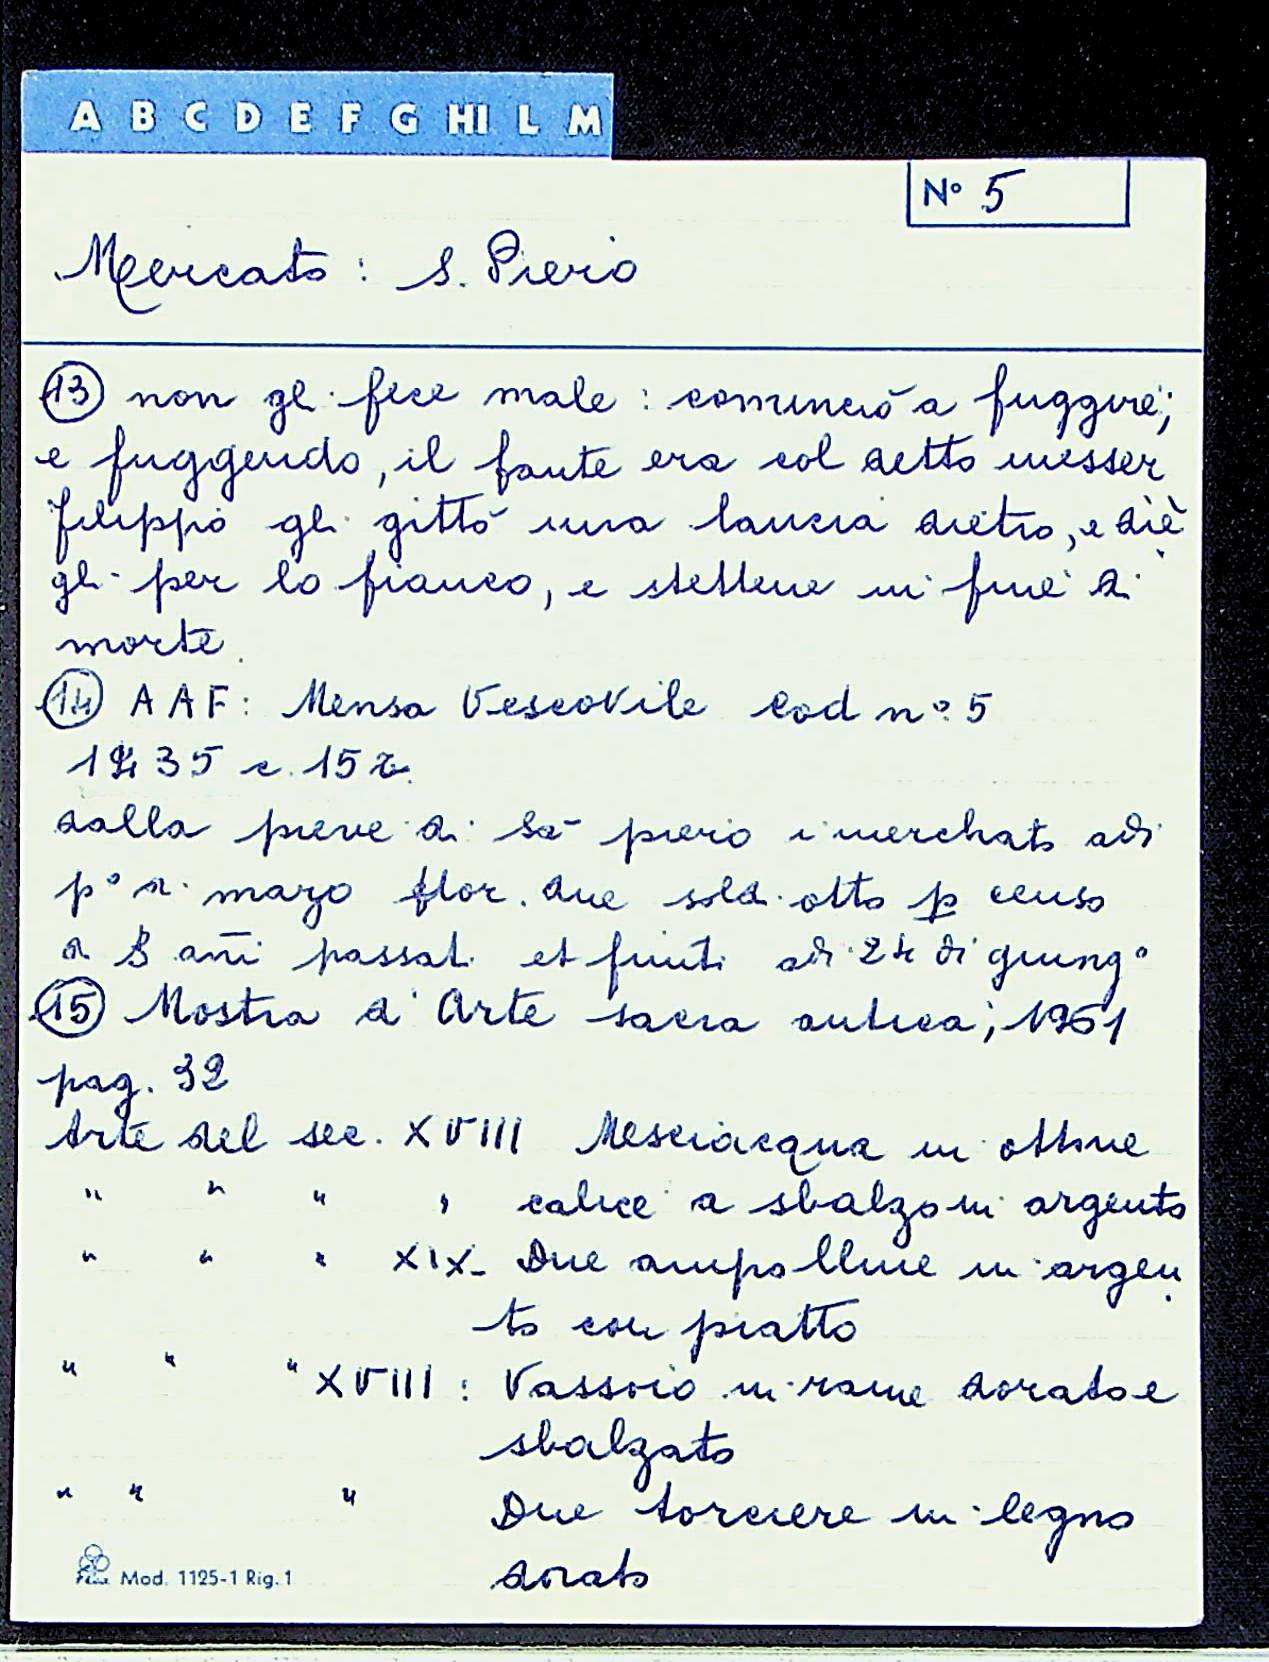 A B C D E F G HI L M
N° 5
Mercato : S. Piero
13 non gli fece male : cominciò a fuggire;
e fuggendo, il fante era col detto messer
filippo gli gittò una lancia dietro, e diè
gli per lo fianco, e stettene in fine di
morte.
14 AAF: Mensa Vescovile Cod n° 5
1435 c. 15 r.
dalla pieve di Sã piero i merchato adi
p° di mazo flor. due sold. otto p censo
di 3 añi passati et finiti adi 24 di giungº
15 Mostra d'Arte sacra antica; 1961
pag. 32
Arte del sec. XVIII Mesciacqua in ottone
" " " , calice a sbalzo in argento
" " " XIX- Due ampolline in argen
to con piatto
" " " XVIII : Vassoio in rame dorato e
sbalzato
" " " Due torciere in legno
dorato
Mod. 1125-1 Rig. 1